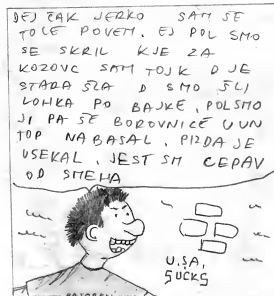 DEJ ČAK JERKO SAM SE
TOLE POVEM. EJ POL SMO
SE SKRIL KJE ZA
KOZOVC SAM TOJK D JE
STARA ŠLA D SMO ŠLI
LOHKA PO BAJKE. POL SMO
JI PA ŠE BOROVNICE U UN
TOP NABASAL. PIZDA JE
USEKAL. JEST SM CEPAV
OD SMEHA
U.S.A.
SUCKS